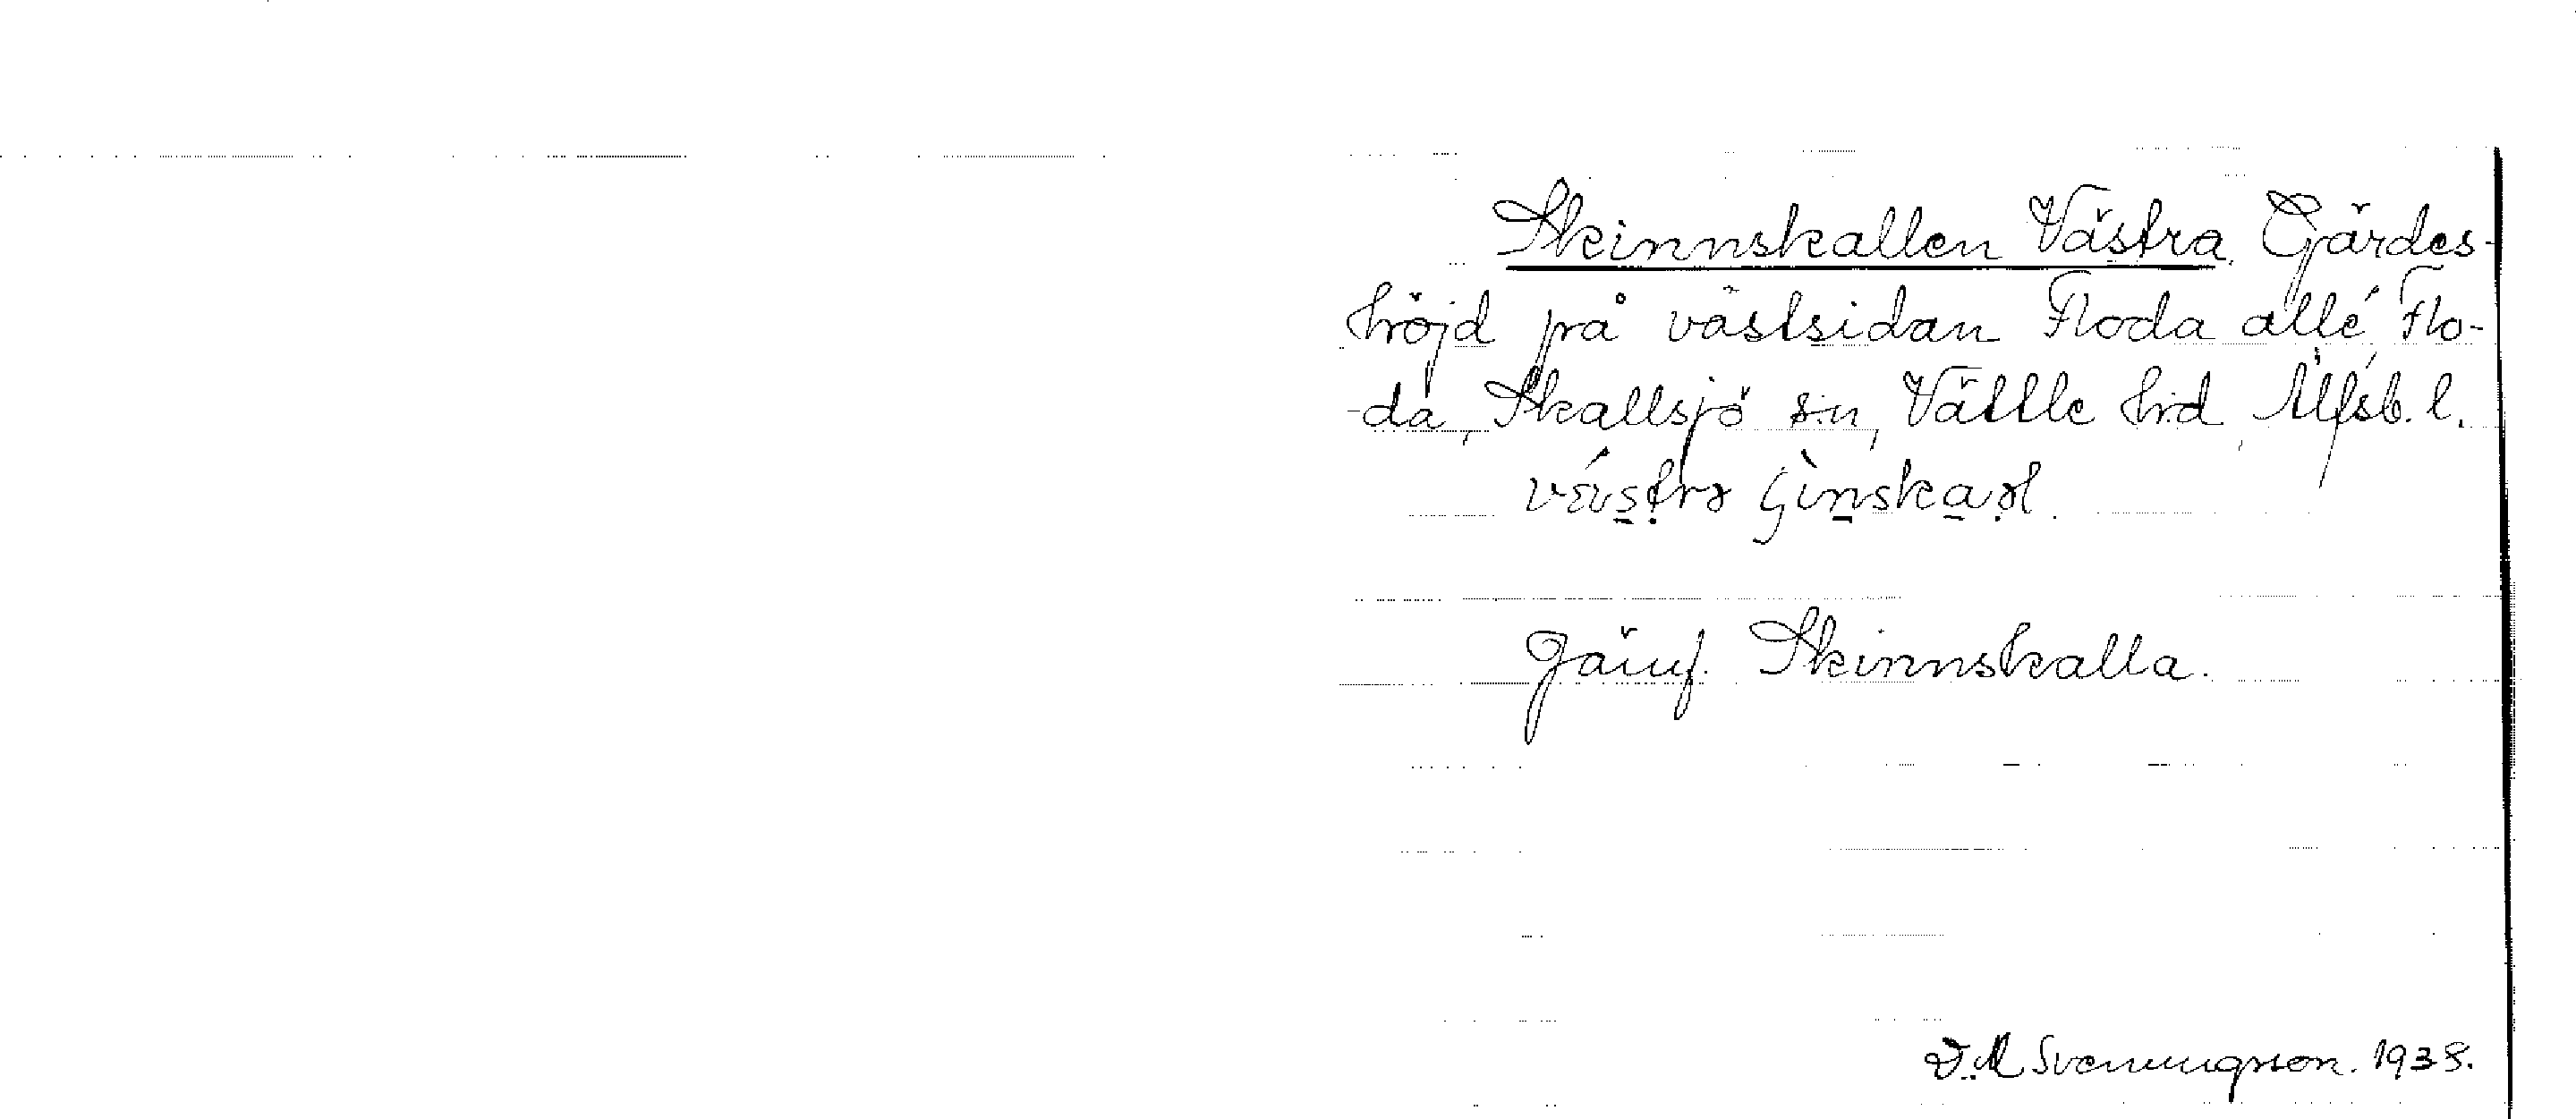 Skinnskallen Västra. Gärdes-
höjd på västsidan Floda allé Flo-
-da, Skallsjö sn, Vättle hrd, Älfsb. l.
Jämf. Skinnskalla.
D. A Svenningsson. 1938.